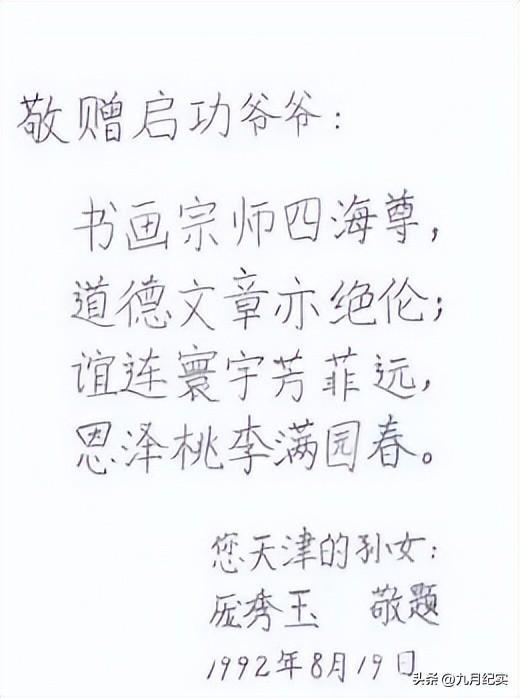 敬赠启功爷爷:
书画宗师四海尊,
道德文章亦绝伦;
谊连寰宇芳菲远,
恩泽桃李满园春。
您天津的孙女:
庞秀玉 敬题
1992年8月19日
头条 @九月纪实